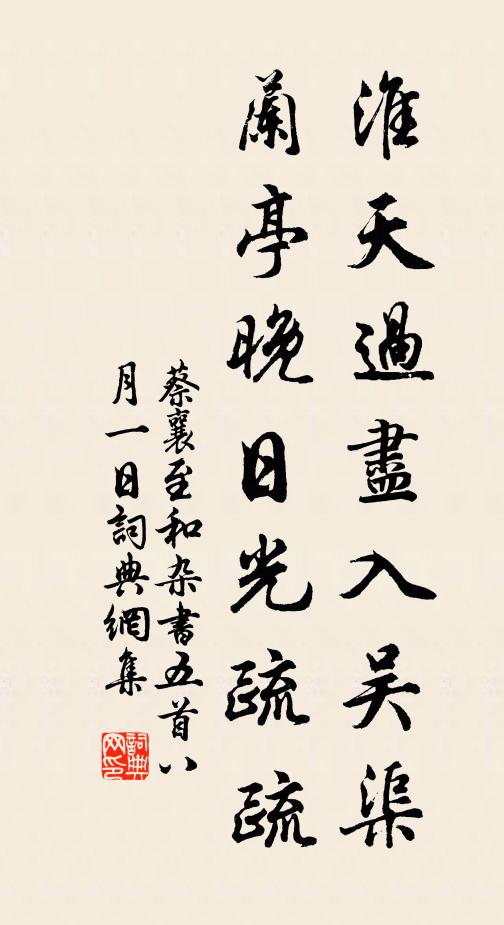 淮天過盡入吴渠
蘭亭晚日光疏疏
蔡襄至和杂書五首八
月一日詞典網集
詞典
网印